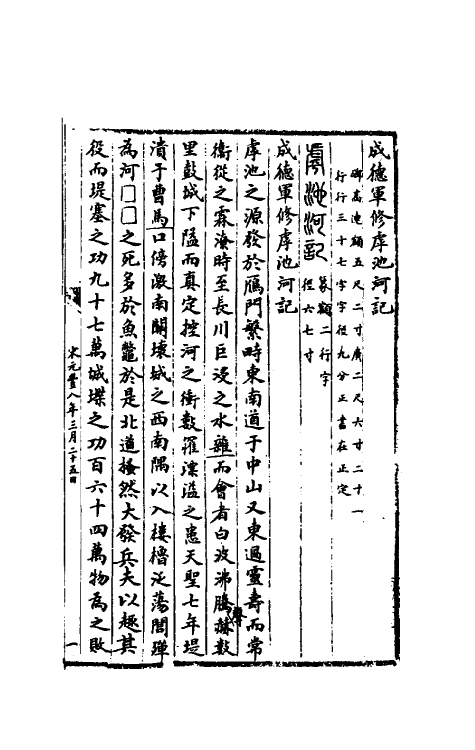 成德軍修虖池河記
碑高連額五尺二寸廣二尺六寸二十一
行行三十七字字徑九分正書在正定
虖池河記
篆額二行字
徑六七寸
成德軍修虖池河記
虖池之源發於鴈門繁畤東南道于中山又東過靈壽而常
衡從之霖潦時至長川巨浸之水雜而會者白波沸騰
數
里鼓城下隘而真定控河之衝數罹漂溢之患天聖七年堤
潰于曹馬口傍激南關壞城之西南隅以入樓櫓泛蕩閭殫
為河□□之死多於魚鼈於是北道搔然大發兵夫以趣其
役而堤塞之功九十七萬城堞之功百六十四萬物為之敗
宋元豐八年三月二十五日
一